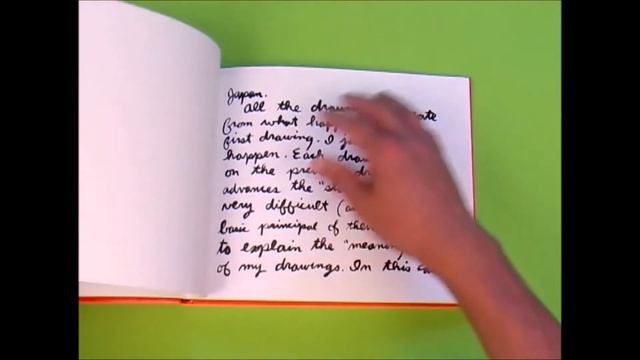 Japan.
All the ate
from what hap
first drawing. I
happen. Each draw
on the prev
advances the "s
very difficult (a
basic principal of the
to explain the "meaning
of my drawings. In this ca